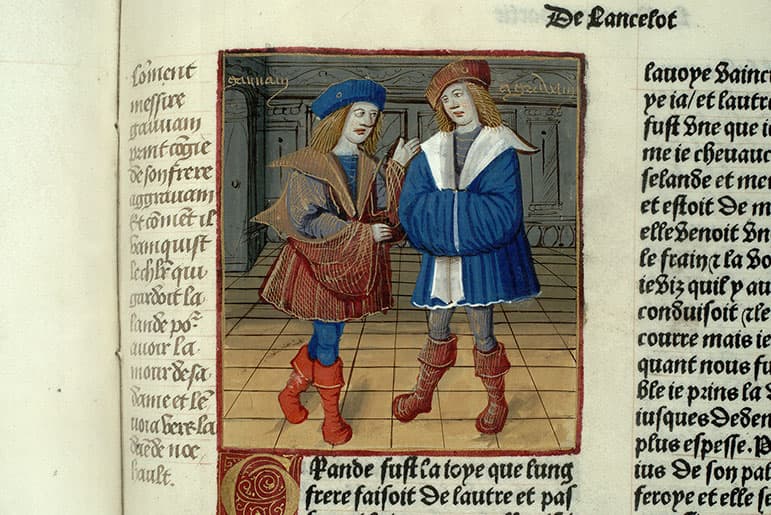 De Lancelot
Comment
messire
gauvain
print cõgie
de son frere
aggravain
Et cõment il
vainquist
le chlr̃ qui
gardoit la
lande poʳ
avoir la
mour de sa
dame et lẽ
vora vers la
hault.
gauvain
Grande fust la ioye que lung
frere faisoit de lautre et pas
lavoye vainc
ye ia/et lautre
fust vne que i
me ie chevauc
selande et me
et estoit de m
elle venoit vn
le frain ⁊ la vo
ie viz quil y au
conduisoit ⁊ le
courre mais ie
quant nous fu
ble ie prins la
iusques deden
plus espesse. P
ius de son pal
feroye et elle se